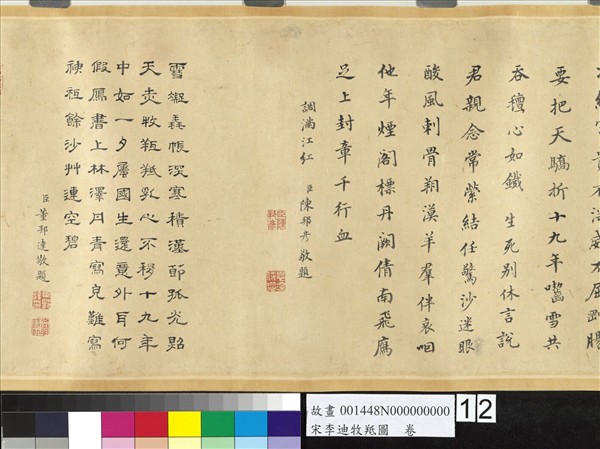 要把天驕折十九年嚙雪共
吞氊心如鐵 生死別休言説
君親念常縈結任驚沙迷眼
酸風刺骨朔漠羊羣伴哀咽
他年煙閣標丹闕倩南飛鴈
足上封章千行血
調滿江紅 臣陳邦彥敬題
雪凝毳帳深寒積漢節孤光貽
天老牧羝羝乳心不移十九年
中如一夕屬國生還意外耳何
假鴈書上林澤丹青寫皃難寫
神祖餘沙艸連空碧
臣董邦達敬題
故畫 001448N000000000
宋李迪牧羝圖 卷
12